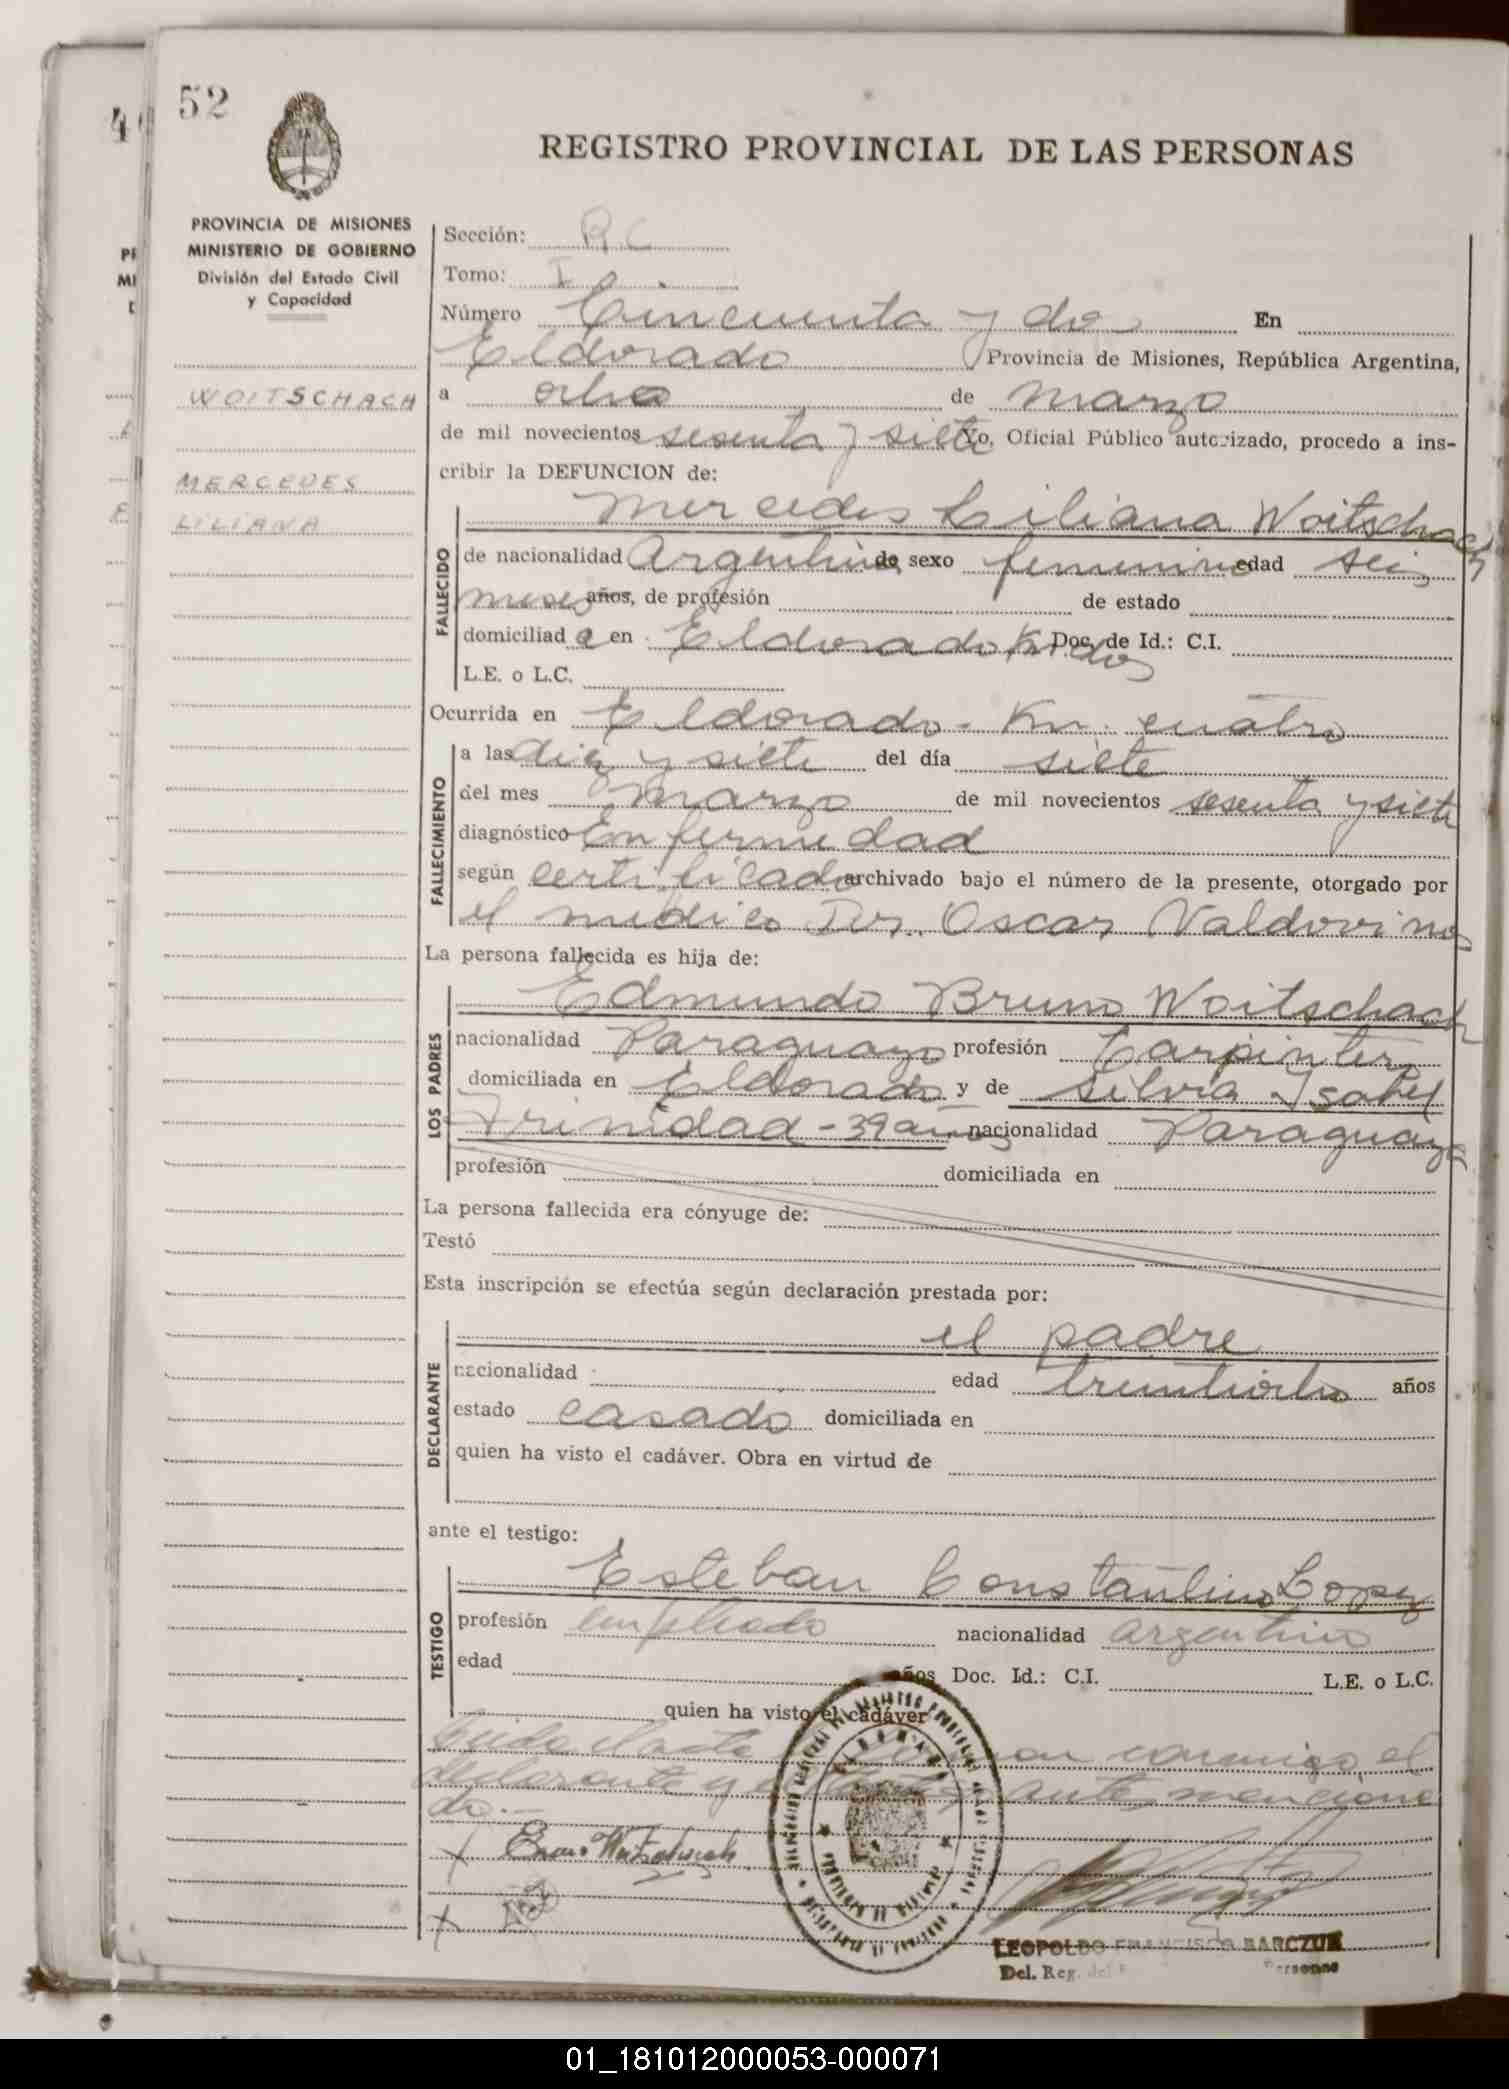 52
REGISTRO PROVINCIAL DE LAS PERSONAS
PROVINCIA DE MISIONES
MINISTERIO DE GOBIERNO
División del Estado Civil
y Capacidad
WOITSCHACH
MERCEDES
LILIANA
Sección: R C
Tomo: I
Número Cincuenta y dos En
Eldorado Provincia de Misiones, República Argentina,
a ocho de marzo
de mil novecientos sesenta y siete Yo, Oficial Público autorizado, procedo a ins-
cribir la DEFUNCION de:
Mercedes Liliana Woitschach
FALLECIDO
de nacionalidad Argentina de sexo femenino edad seis
meses años, de profesión de estado
domiciliad a en Eldorado Km dos Doc. de Id.: C.I.
L.E. o L.C.
Ocurrida en Eldorado - Km. cuatro
FALLECIMIENTO
a las diez y siete del día siete
del mes Marzo de mil novecientos sesenta y siete
diagnóstico Enfermedad
según certificado archivado bajo el número de la presente, otorgado por
el médico Dr. Oscar Valdovinos
La persona fallecida es hija de:
LOS PADRES
Edmundo Bruno Woitschach
nacionalidad Paraguayo profesión Carpintero
domiciliada en Eldorado y de Silvia Isabel
Trinidad - 39 años nacionalidad Paraguaya
profesión domiciliada en
La persona fallecida era cónyuge de:
Testó
Esta inscripción se efectúa según declaración prestada por:
DECLARANTE
el padre
nacionalidad edad treintiocho años
estado casado domiciliada en
quien ha visto el cadáver. Obra en virtud de
ante el testigo:
TESTIGO
Esteban Constantino Lopez
profesión empleado nacionalidad argentino
edad años Doc. Id.: C.I. L.E. o L.C.
quien ha visto el cadáver
Leída el acta conmigo el
declarante y el testigo antes menciona
do.-
LEOPOLDO FRANCISCO BARCZUK
Del. Reg. del Personas
01_181012000053-000071